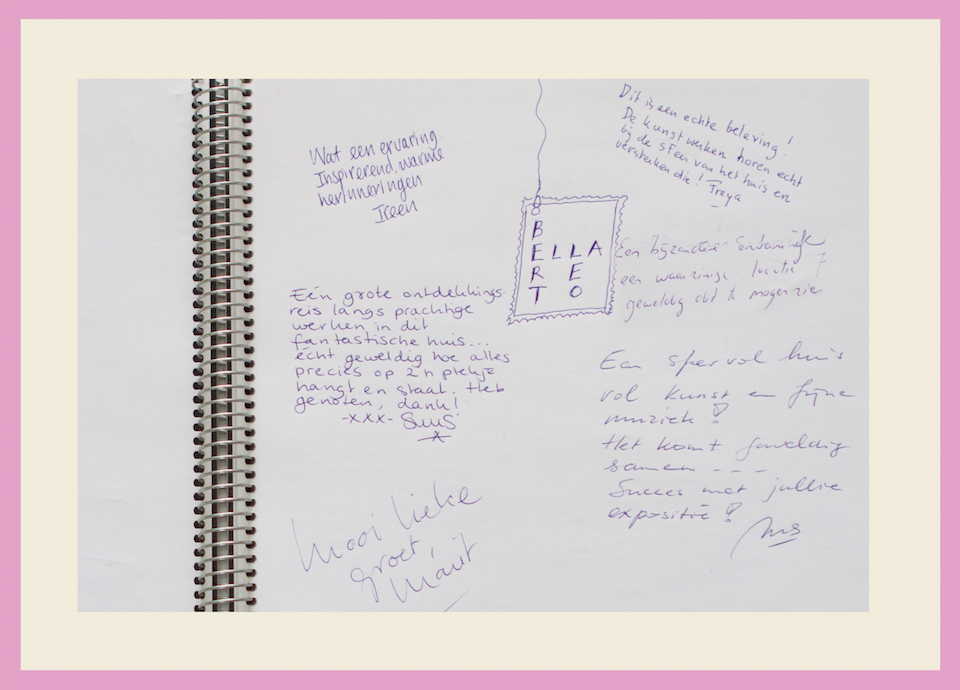 Wat een ervaring.
Inspirerend, warme
herinneringen
Ireen
Dit is een echte beleving!
De kunstwerken horen echt
bij de sfeer van het huis en
versterken die! Freya
B
ELLA
R E
T O
Een bijzondere
een waanzinnige locatie
geweldig dit te mogen zien
Eén grote ontdekkings-
reis langs prachtige
werken in dit
fantastische huis...
écht geweldig hoe alles
precies op z'n plekje
hangt en staat. Heb
genoten, dank!
-xxx- Suus
x
Een sfeervol huis
vol kunst en fijne
muziek!
Het komt geweldig
samen ---
Succes met jullie
expositie!
Mooi Lieke
groet,